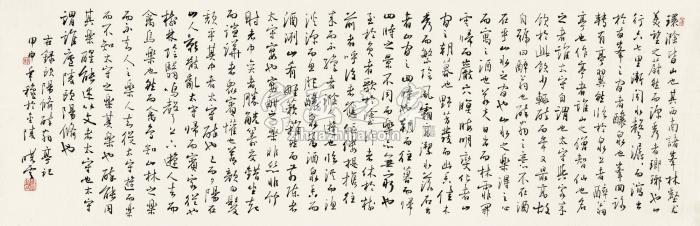 環滁皆山也其西南諸峯林壑尤
美望之蔚然而深秀者瑯琊也山
行六七里漸聞水聲潺潺而瀉出
於兩峯之間者釀泉也峯回路
轉有亭翼然臨於泉上者醉翁亭也作亭
之者誰山之僧智仙也名
之者誰太守自謂也太守與客來
飲於此飲少輒醉而年又最高故
自號曰醉翁也醉翁之意不在酒
在乎山水之間也山水之樂得之心
而寓之酒也若夫日出而林霏開
雲歸而巖穴暝晦明變化者山
間之朝暮也野芳發而幽香佳木
秀而繁陰風霜高潔水落石出
者山間之四時也朝而往暮而歸
四時之景不同而樂亦無窮也
至於負者歌於途行者休於樹
前者呼後者應傴僂提攜往
來而不絕者滁人遊也臨溪而漁
溪深而魚肥釀泉為酒泉香而
酒洌山肴野蔌雜然而前陳者
太守宴也宴酣之樂非絲非竹
射者中弈者勝觥籌交錯坐起
而諠譁者眾賓懽也蒼顏白髮
頹乎其中者太守醉也已而夕陽在
山人影散亂太守歸而賓客從也
樹林陰翳鳴聲上下遊人去而
禽鳥樂也然而禽鳥知山林之樂
而不知人之樂人知從太守遊而樂
而不知太守之樂其樂也醉能同
其樂醒能述以文者太守也太守
謂誰廬陵歐陽修也
歐陽脩醉翁亭記
甲申於金陵